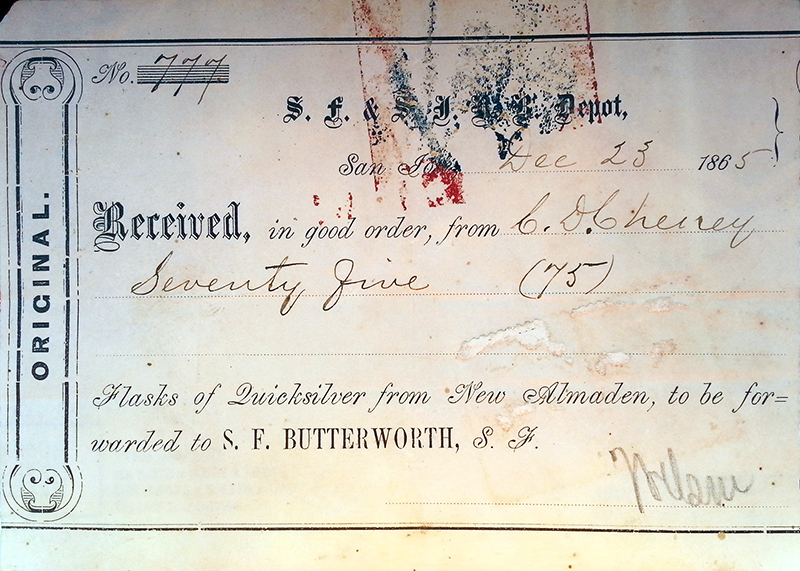 ORIGINAL.
No. 777
S. F. & S. J. R. R. Depot,
San Jose, Dec 23 1865
Received, in good order, from C. D. Cheney
Seventy Five (75)
Flasks of Quicksilver from New Almaden, to be for=
warded to S. F. BUTTERWORTH, S. F.